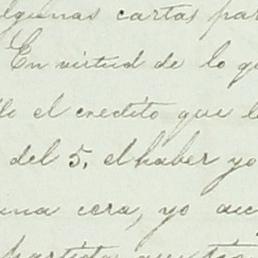 algunas cartas par
En virtud de lo qu
llo el credito que l
del 5. el haber yo
una cera, yo acc
partida